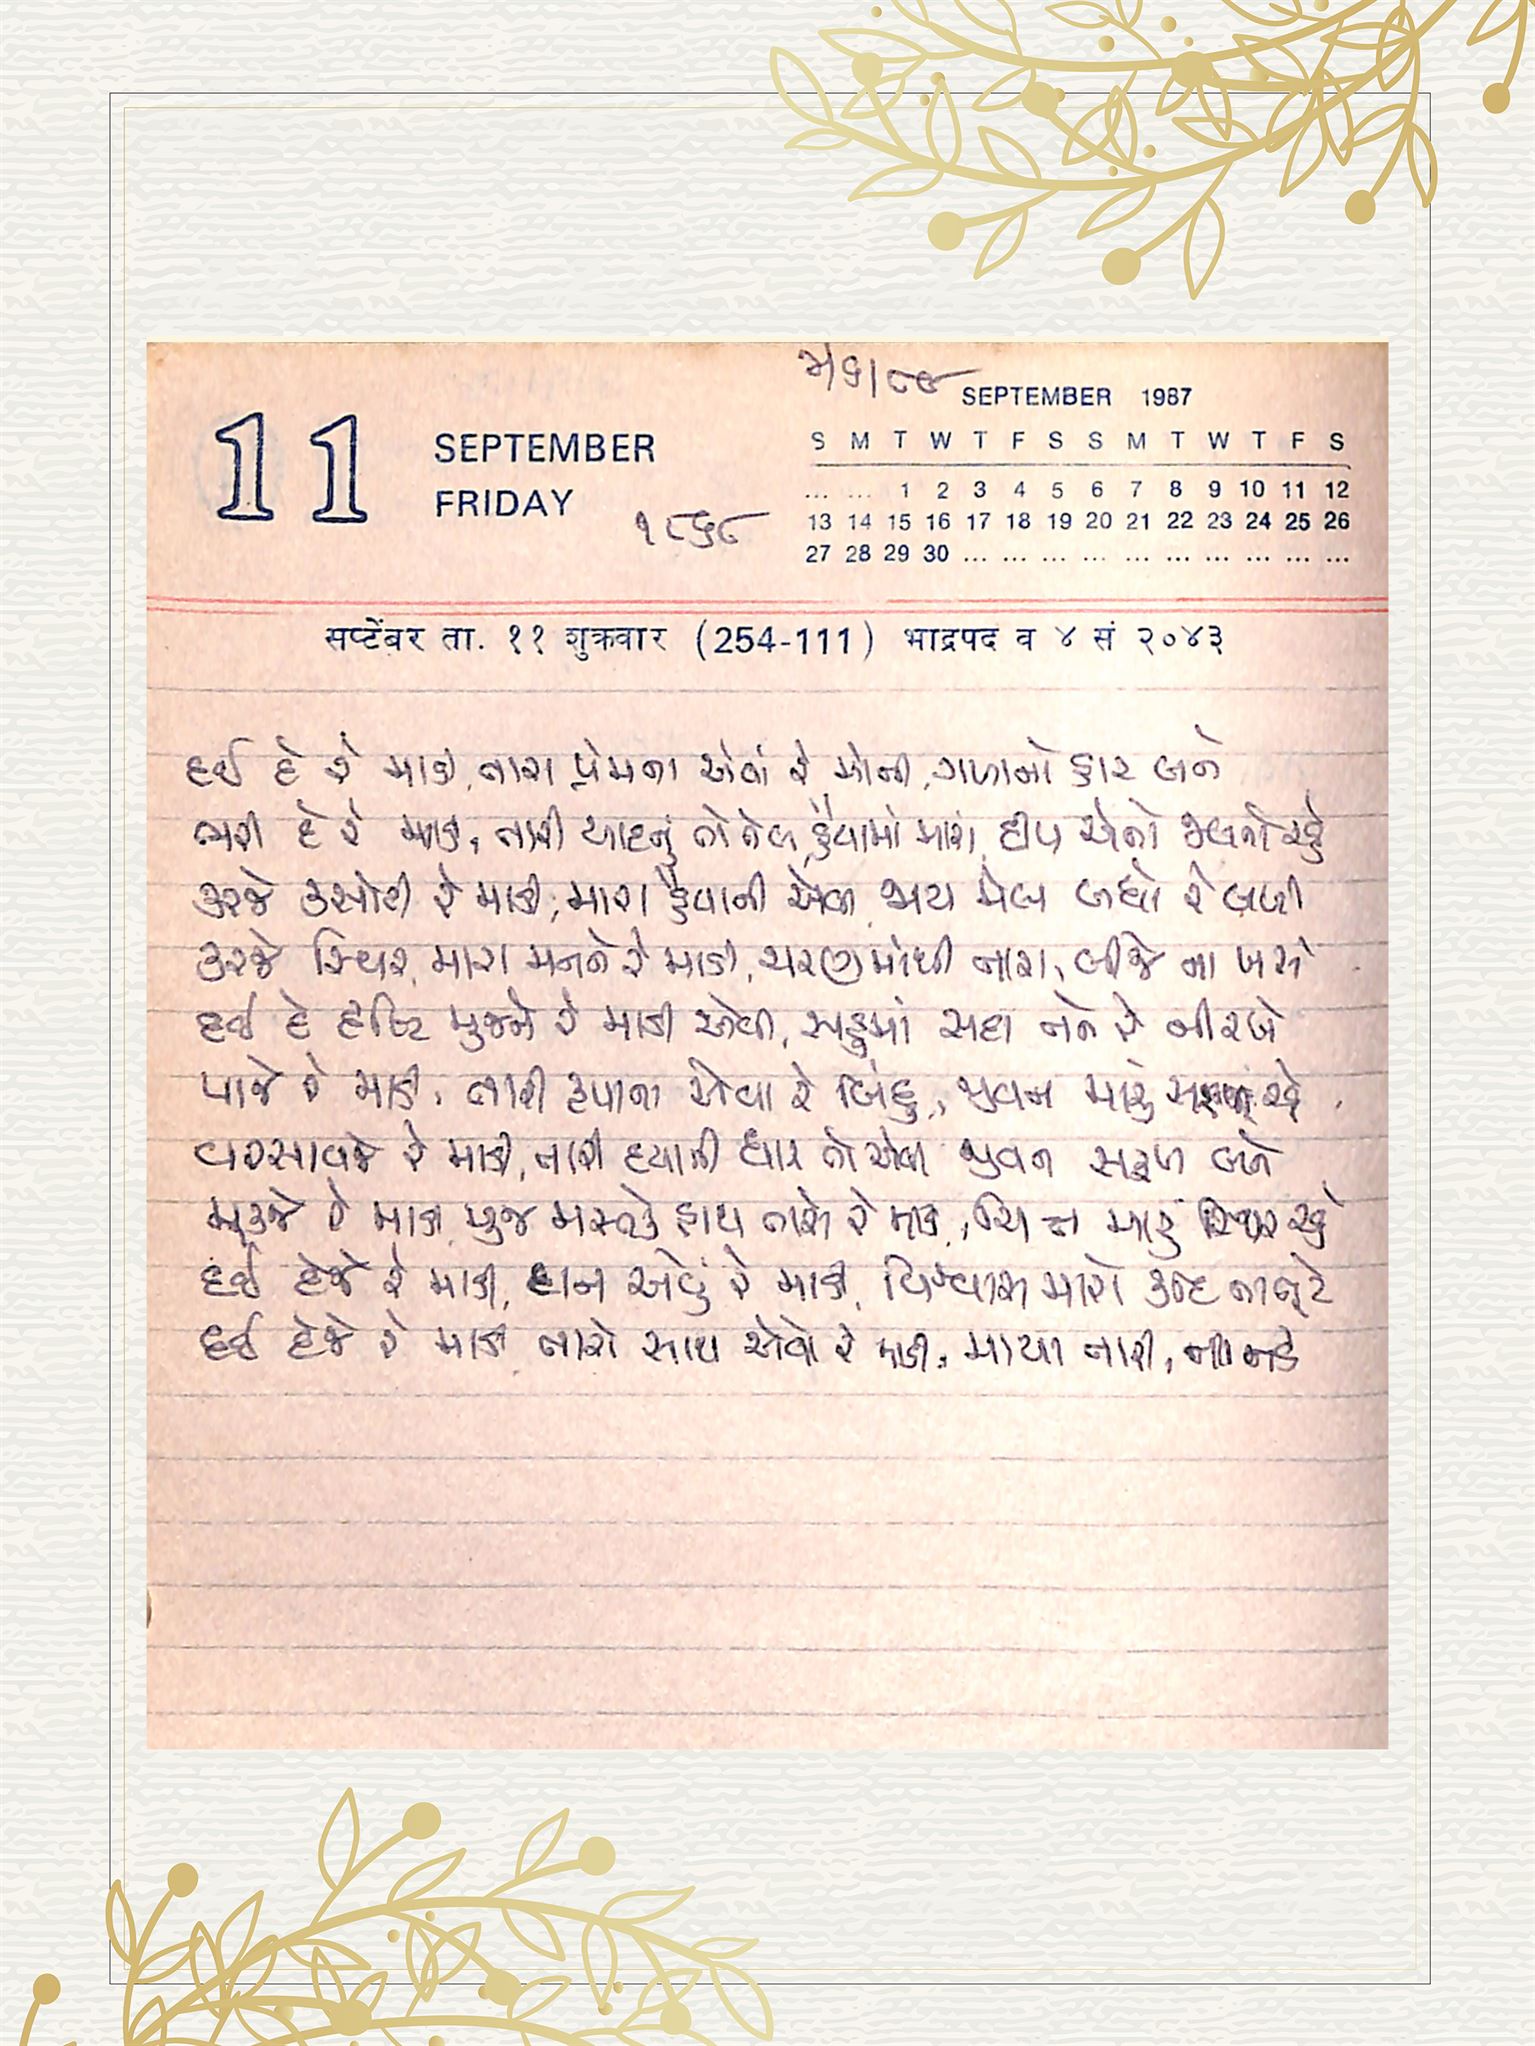 ૨/૬/૮૯
11 SEPTEMBER FRIDAY
૧૮૬૮
SEPTEMBER 1987
S M T W T F S S M T W T F S
... ... 1 2 3 4 5 6 7 8 9 10 11 12
13 14 15 16 17 18 19 20 21 22 23 24 25 26
27 28 29 30 ... ... ... ... ... ... ... ... ... ...
सप्टेंबर ता. ११ शुक्रवार (254-111) भाद्रपद व ४ सं २०४३
દઈ દે રે માડી, તારા પ્રેમના એવાં રે મોતી, ગળાનો હાર બને
ભરી દે રે માડી, તારી યાદનું તો તેલ હૈયામાં મારાં, દીપ એનો જલતો રહે
કરજે કસોટી રે માડી, મારા હૈયાની એવી, ભય મેલ બધો રે બળી
કરજે સ્થિર, મારા મનને રે માડી, ચરણમાંથી તારા, બીજે ના ખસે
દઈ દે દૃષ્ટિ મુજને રે માડી એવી, સહુમાં સદા તને રે નીરખે
પાજે રે માડી, તારી કૃપાના એવા રે બિંદુ, જીવન મારું રહે
વરસાવજે રે માડી, તારી દયાની ધાર તો એવી જીવન સફળ બને
મૂકજે રે માડી મુજ મસ્તકે હાથ તારો રે માડી, ચિત્ત મારું સ્થિર રહે
દઈ દેજે રે માડી, દાન એવું રે માડી, વિશ્વાસ મારો કદી ના તૂટે
દઈ દેજે રે માડી તારો સાથ એવો રે માડી, માયા તારી, ના નડે